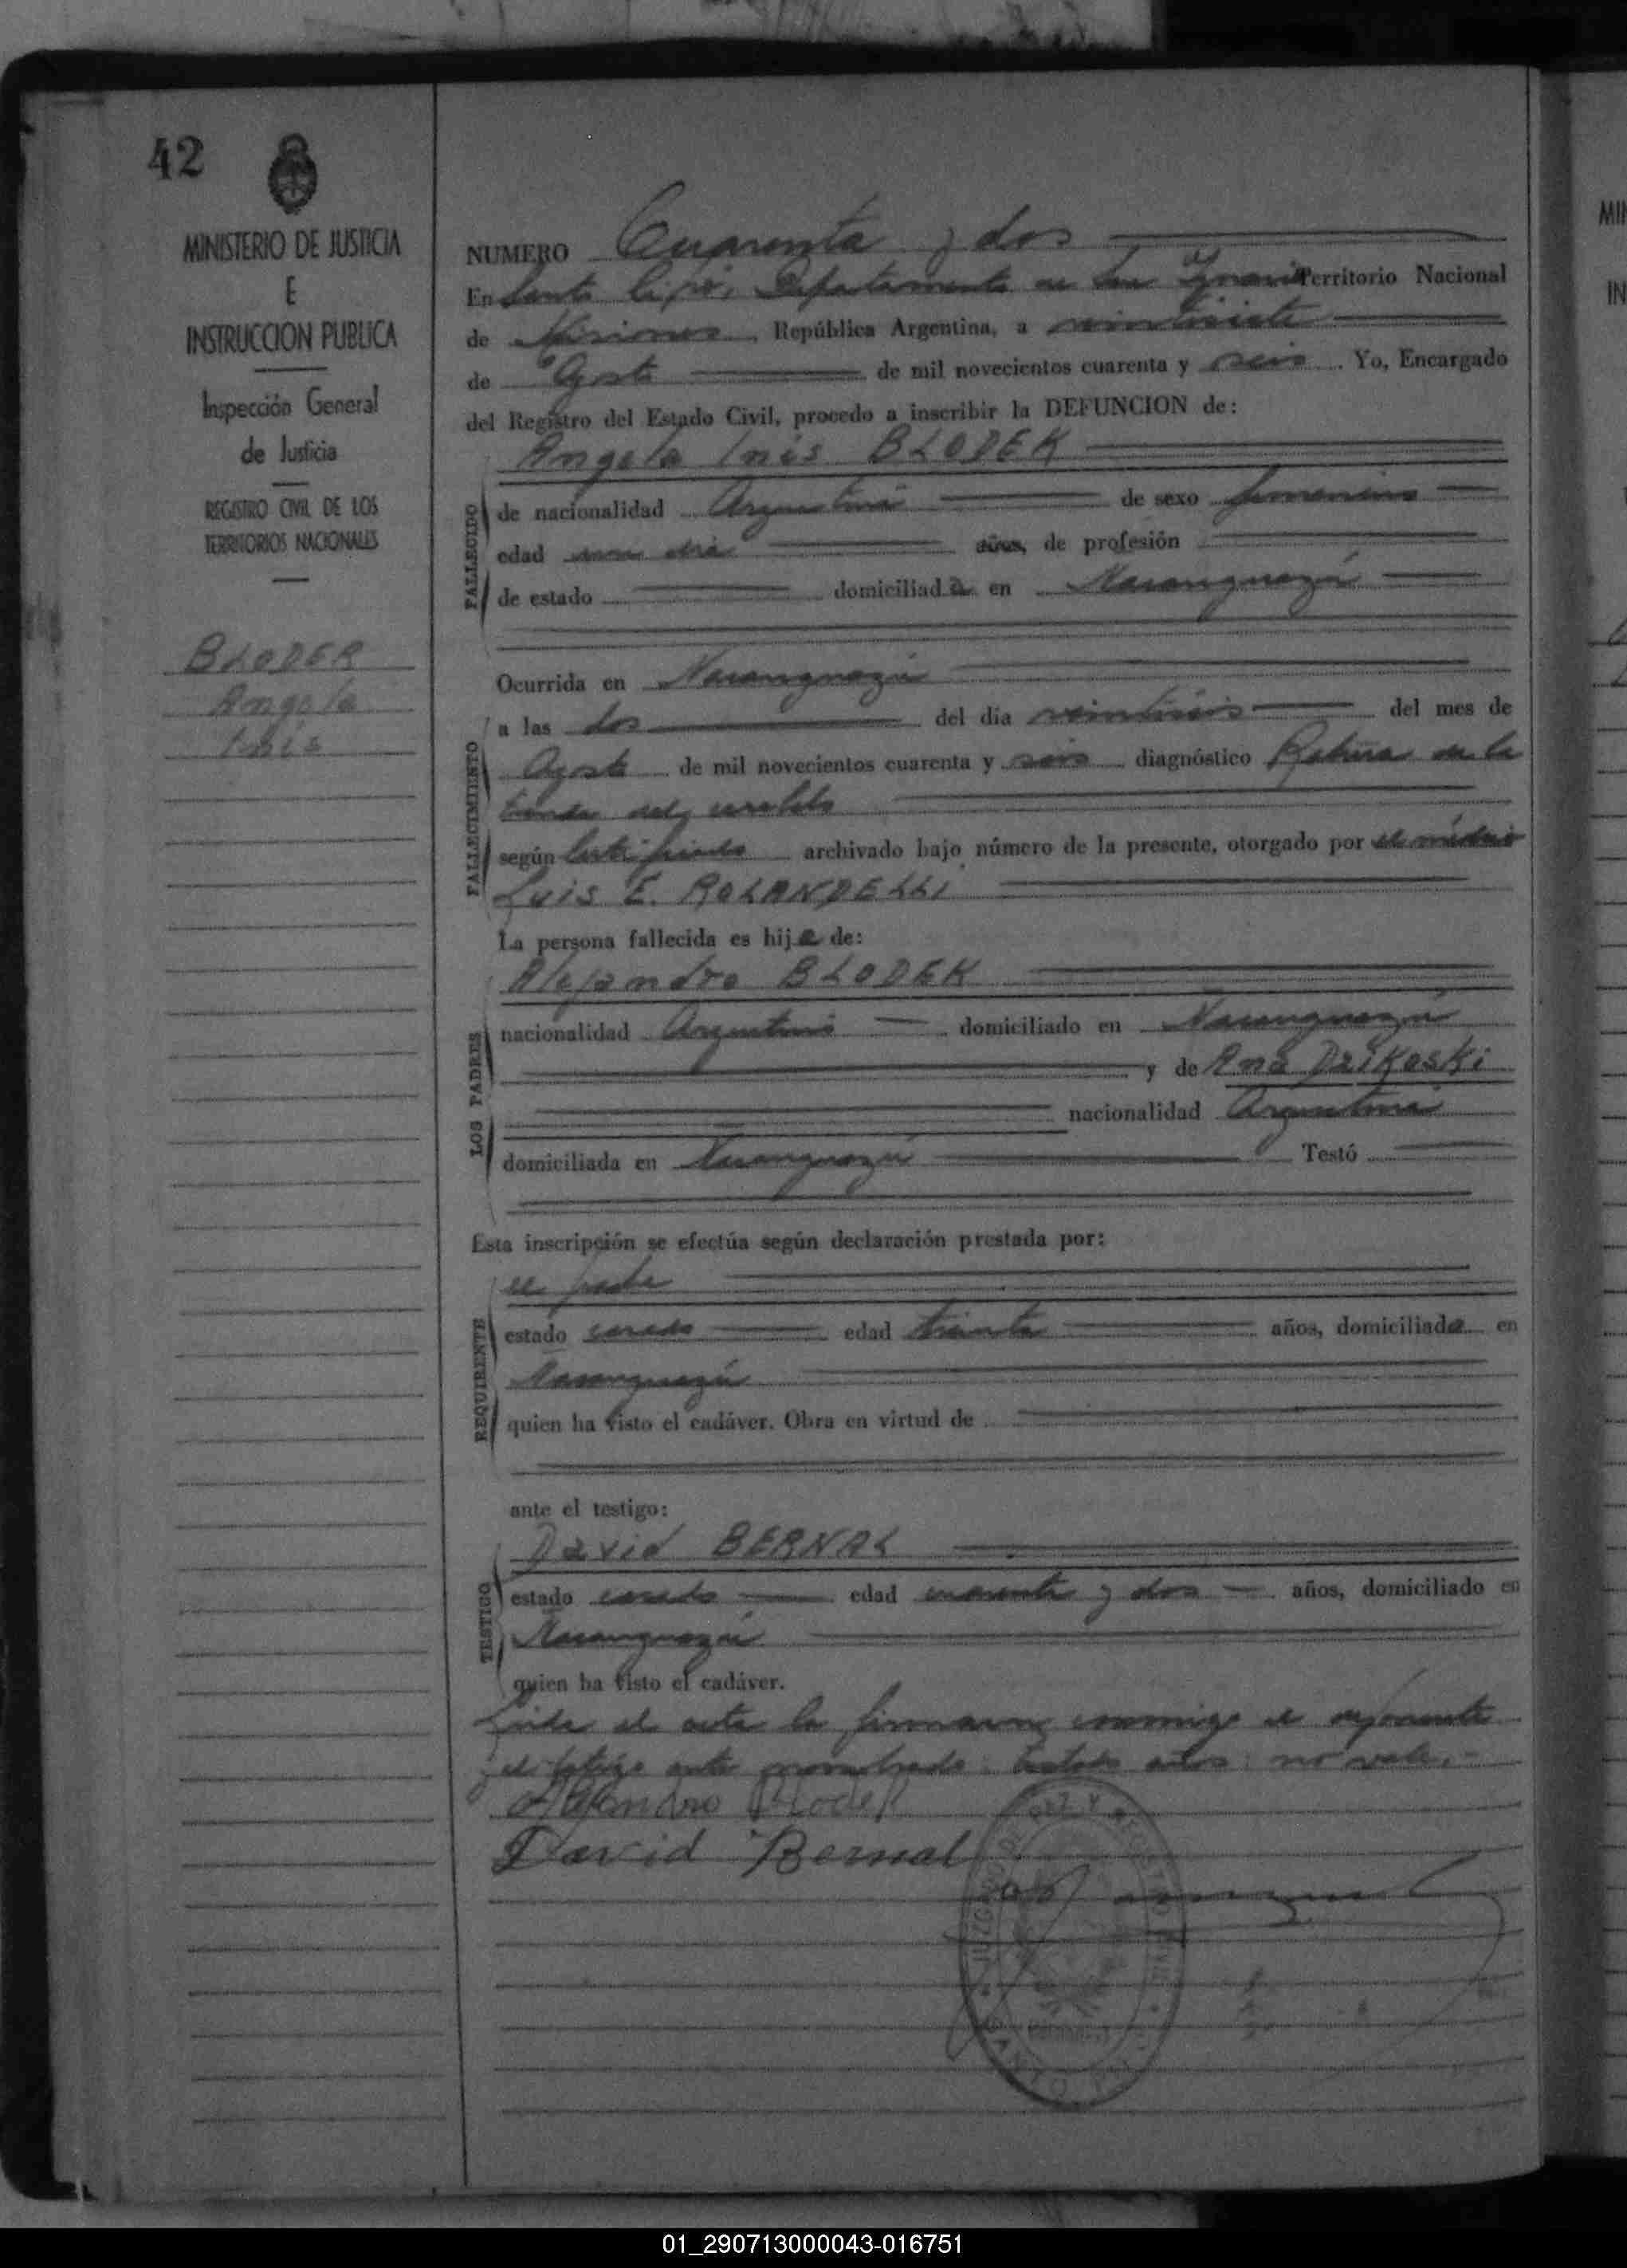 42
MINISTERIO DE JUSTICIA
E
INSTRUCCION PUBLICA
Inspección General
de Justicia
REGISTRO CIVIL DE LOS
TERRITORIOS NACIONALES
BLODEK
Angela
Inés
NUMERO Cuarenta y dos
En Santo Pipó, Departamento de San Ignacio Territorio Nacional
de Misiones, República Argentina, a veintisiete
de Agosto de mil novecientos cuarenta y seis. Yo, Encargado
del Registro del Estado Civil, procedo a inscribir la DEFUNCION de:
Angela Inés BLODEK
FALLECIDO
de nacionalidad Argentina de sexo femenino
edad un día años, de profesión
de estado domiciliada en
Ocurrida en
FALLECIMIENTO
a las dos del día veintiseis del mes de
Agosto de mil novecientos cuarenta y seis diagnóstico de la
según certificado archivado bajo número de la presente, otorgado por el médico
Luis E. ROLANDELLI
La persona fallecida es hija de:
Alejandro BLODEK
LOS PADRES
nacionalidad Argentino domiciliado en
y de Ana Dzikoski
nacionalidad Argentina
domiciliada en Testó
Esta inscripción se efectúa según declaración prestada por:
el padre
REQUIRENTE
estado casado edad treinta años, domiciliado en
quien ha visto el cadáver. Obra en virtud de
ante el testigo:
David BERNAL
TESTIGO
estado casado edad cuarenta y dos años, domiciliado en
quien ha visto el cadáver.
Leída el acta la firmaron conmigo el exponente
y el testigo ante nombrado: testado años: no vale.-
Alejandro Blodek
David Bernal
01_290713000043-016751